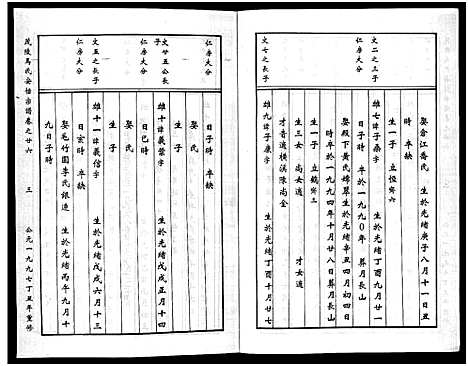 文二之三子
仁房大分
文七之長子
娶倉江喬氏 生於光緒庚子八月十一日丑
時 卒缺
生一子 立恆寄六
雄七諱子鼎字 生於光緒丁酉九月廿一
日子時 卒於一九九0年 葬月長山
娶殿下黃氏嫦翠生於光緒辛丑四月初四日
時卒於一九九四年十月廿八日葬月長山
生一子 立鶴寄二
生三女 尚女適 才女適
才音適橫溪陳尚金
雄九諱子康字 生於光緒丁酉十月廿七
仁房大分
文廿五公長子
仁房大分
文五之長子
日子時 卒缺
娶氏
生子
雄十諱義葉字 生於光緒戊戌正月十四
日巳時 卒缺
娶氏
生子
雄十一諱義信字 生於光緒戊戌六月十三
日亥時 卒缺
娶毛竹園李氏銀造 生於光緒丙午九月十
九日子時
茂陵馬氏安恬宗譜卷之廿六 三 公元一九九七丁丑年重修